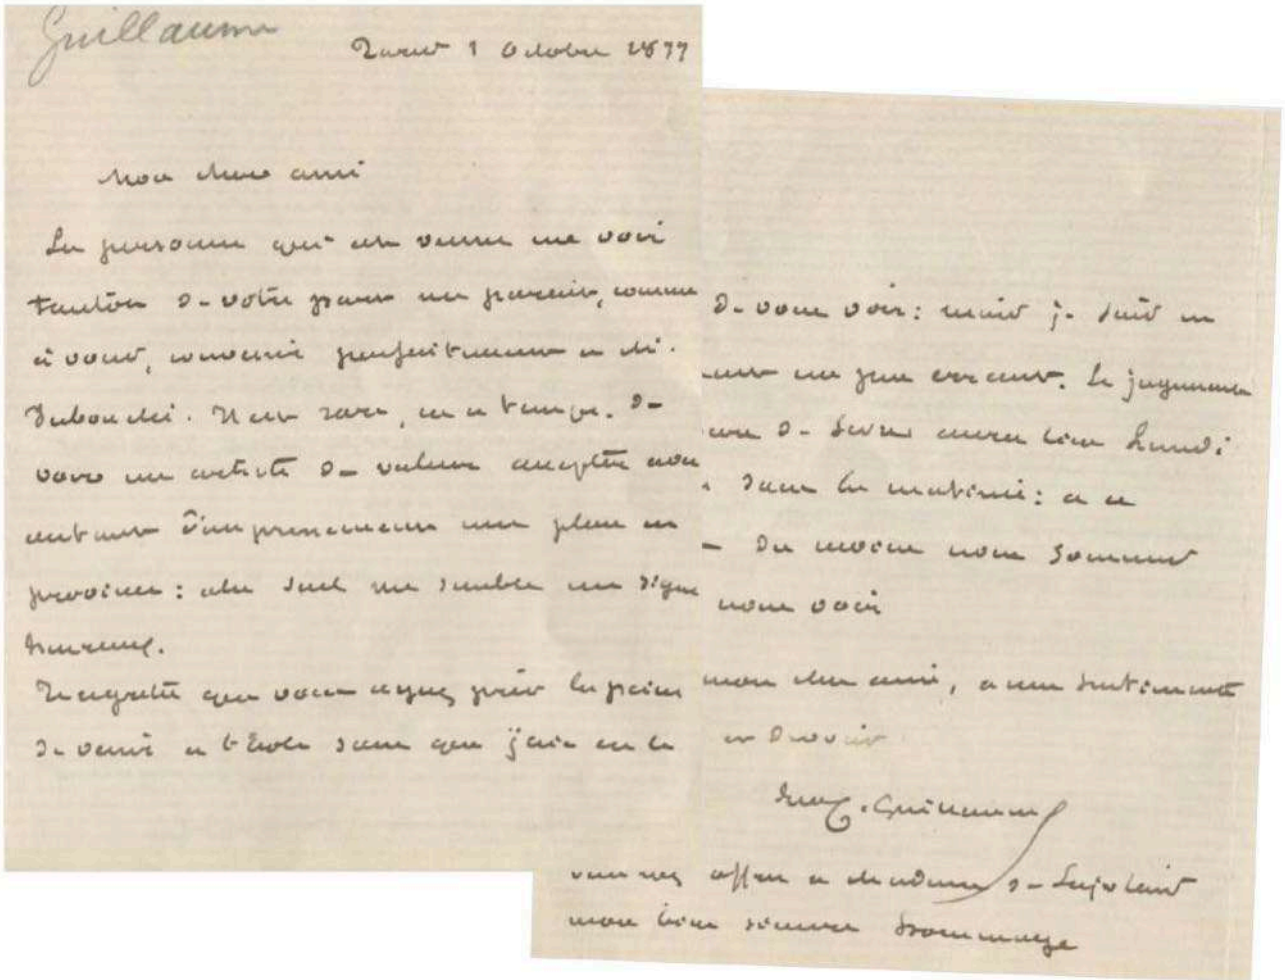 Guillaume
Paris 1 Octobre 1877
Mon cher ami
La personne qui est venue me voir
tantôt de votre part me paraît, comme
à vous, convenir parfaitement a M.
Dubouché. Il est rare, en ce temps, de
voir un artiste de valeur accepter avec
autant d'empressement une place en
province: cela seul me semble un signe
heureux.
Je regrette que vous ayez pris la peine
de venir a l'Ecole sans que j'aie eu le
de vous voir: mais je suis en
un peu errant. Le jugement
de Sèvres aura lieu Lundi
dans la matinée: a ce
du moins nous sommes
nous voir
mon cher ami, a mes sentiments
et dévoués
Eug. Guillaume
Veuillez offrir a Madame de
mon bien sincère hommage